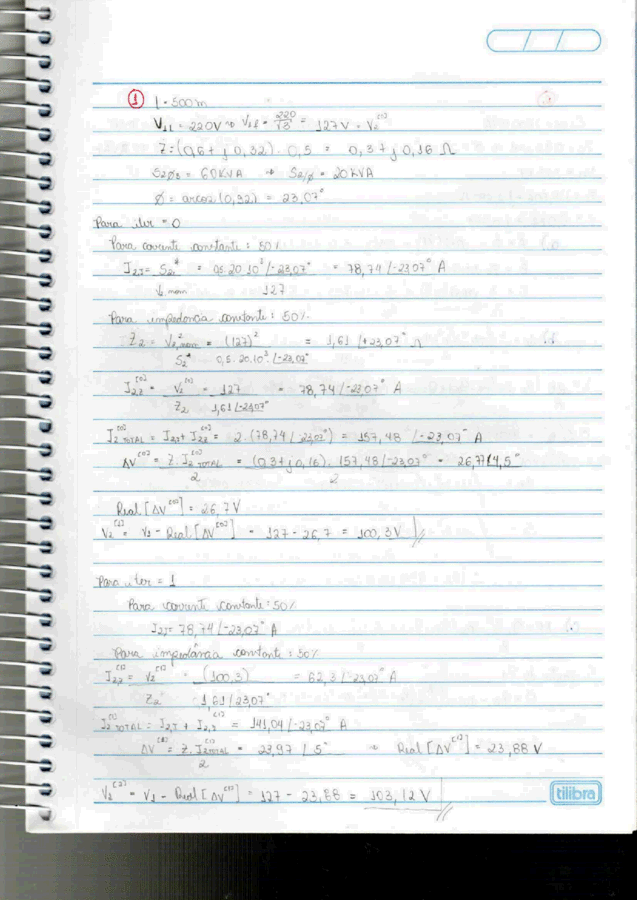 ① l = 500m
V1L = 220V → V1f = 220/√3 = 127V = V2^(0)
Z = (0,6 + j 0,32) . 0,5 = 0,3 + j 0,16 Ω
S2ø3 = 60KVA → S2/ø = 20KVA
Ø = arcos (0,32) = 23,07°
Para iter = 0
Para corrente constante: 50%
I2,I = S2* = 0,5.20.10³ /-23,07° = 78,74 /-23,07° A
V nom 127
Para impedância constante: 50%
Z2 = V2,nom² = (127)² = 1,61 /+23,07° Ω
S2* 0,5.20.10³ /-23,07°
I2,Z^(0) = V2^(0) = 127 = 78,74 /-23,07° A
Z2 1,61 /-23,07°
I2 TOTAL^(0) = I2,I + I2,Z^(0) = 2.(78,74 /-23,07°) = 157,48 /-23,07° A
ΔV^(0) = Z.I2 TOTAL^(0) = (0,3+j0,16).157,48 /-23,07° = 26,77 /4,5°
2 2
Real [ΔV^(0)] = 26,7 V
V2^(1) = V1 - Real [ΔV^(0)] = 127 - 26,7 = 100,3V
Para iter = 1
Para corrente constante: 50%
I2,I = 78,74 /-23,07° A
Para impedância constante: 50%
I2,Z^(1) = V2^(1) = (100,3) = 62,3 /-23,07° A
Z2 1,61 /23,07°
I2 TOTAL^(1) = I2,I + I2,Z^(1) = 141,04 /-23,07° A
ΔV^(1) = Z.I2TOTAL^(1) = 23,97 /5° → Real [ΔV^(1)] = 23,88 V
2
V2^(2) = V1 - Real [ΔV^(1)] = 127 - 23,88 = 103,12 V
tilibra